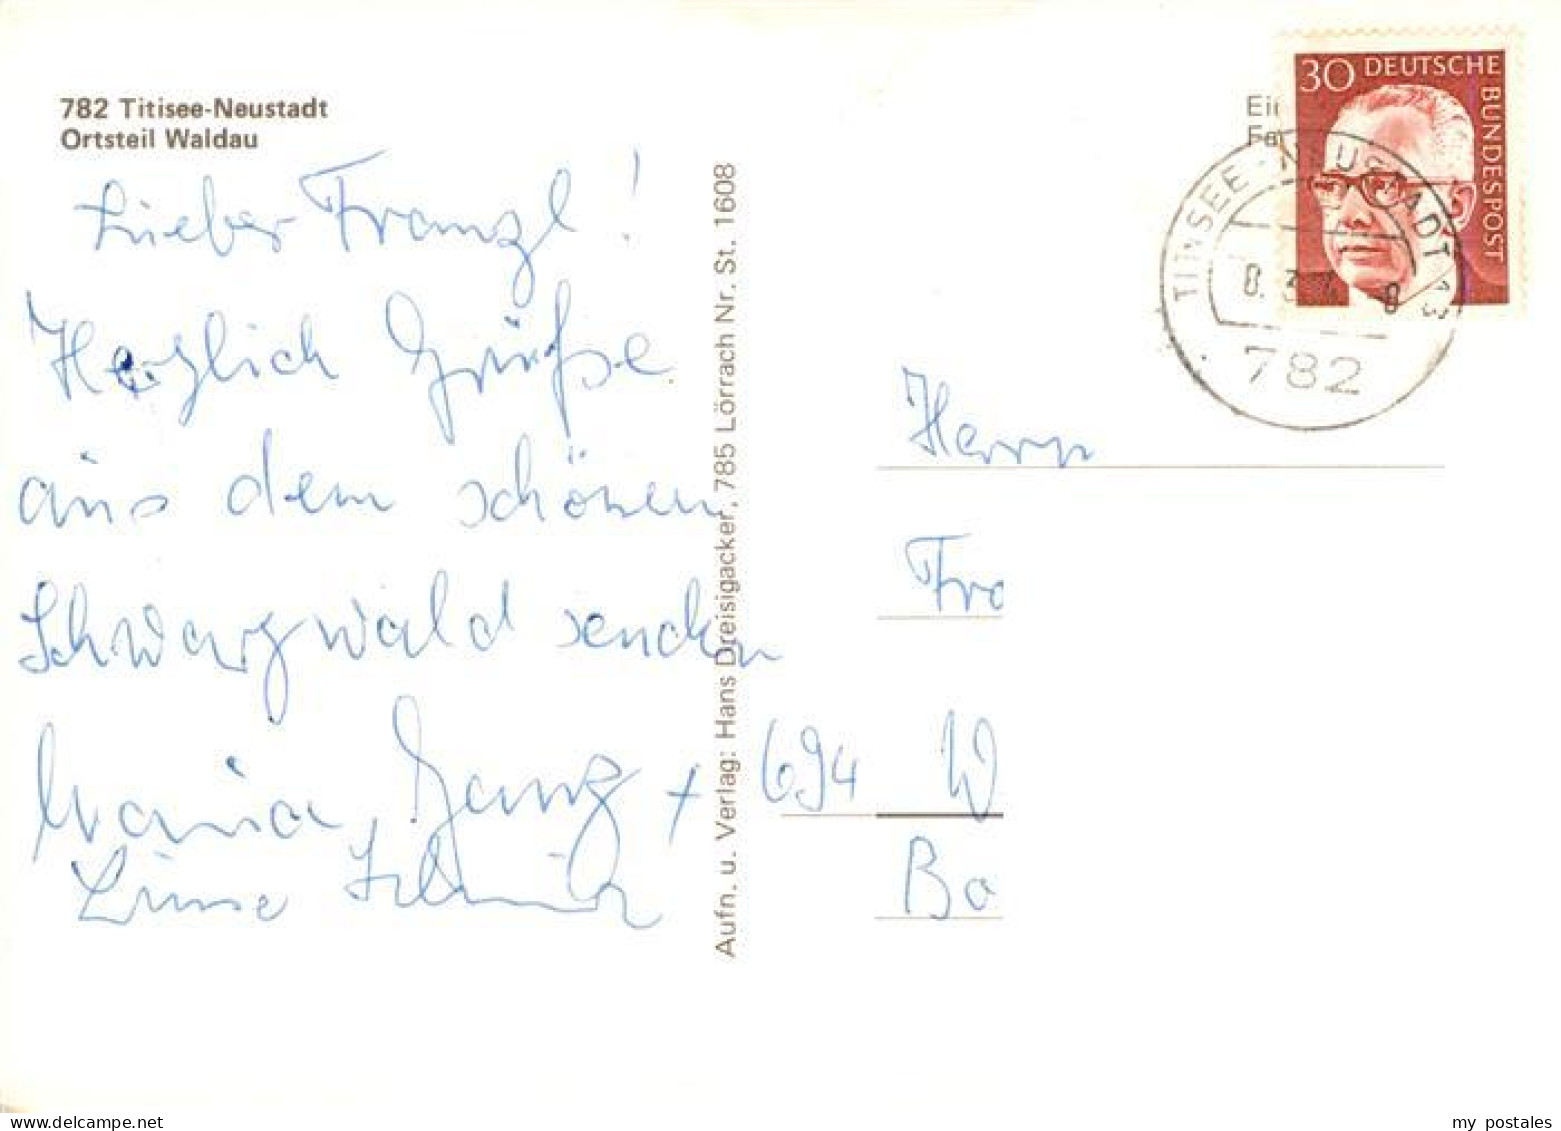 782 Titisee-Neustadt
Ortsteil Waldau
Lieber Franzl!
Herzlich Grüße
aus dem schönen
Schwarzwald senden
Maria,
Aufn. u. Verlag: Hans Dreisigacker, 785 Lörrach Nr. St. 1608
30 DEUTSCHE
BUNDESPOST
TITISEE-NEUSTADT
782
Herrn
Fra
694 W
Ba
my postales